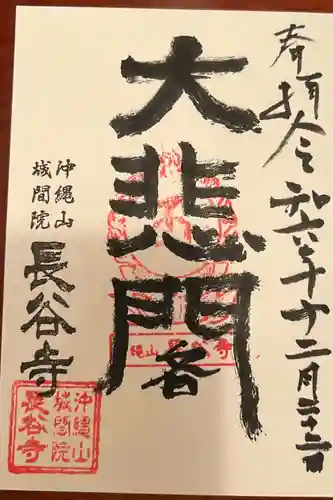 奉拝 令和六年十二月二十二日
大悲閣
沖縄山
城間院
長谷寺
沖縄山
城間院
長谷寺